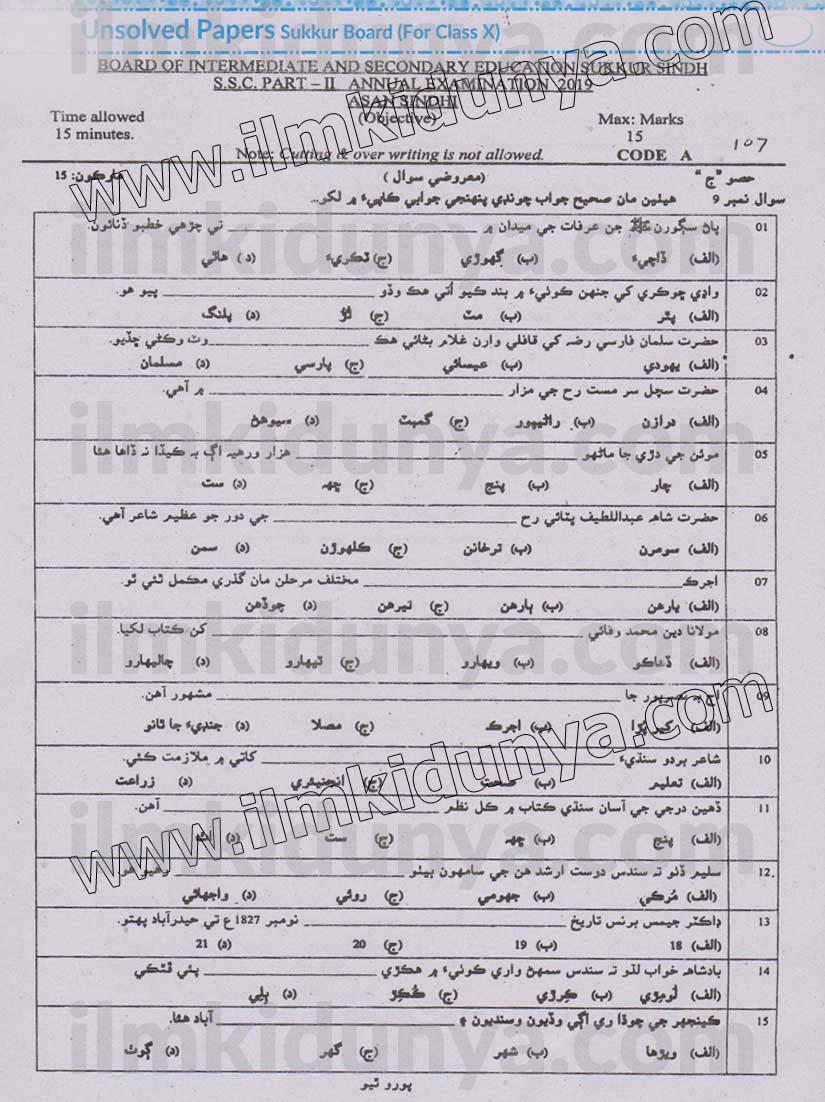 Unsolved Papers Sukkur Board (For Class X)
BOARD OF INTERMEDIATE AND SECONDARY EDUCATION SUKKUR SINDH
S.S.C. PART – II ANNUAL EXAMINATION 2019
ASAN SINDHI
(Objective)
Time allowed
15 minutes.
Max: Marks
15
CODE A
107
Note: Cutting & over writing is not allowed.
حصو "ج"
(معروضي سوال)
مارڪون: 15
سوال نمبر 9 هيٺين مان صحيح جواب چونڊي پنهنجي جوابي ڪاپيءَ ۾ لکو..
01 پاڻ سڳورن ﷺ جن عرفات جي ميدان ۾ ____ تي چڙهي خطبو ڏنائون.
(الف) ڏاچيءَ (ب) گهوڙي (ج) ٽڪريءَ (د) هاٿي
02 واڍي ڇوڪري کي جنهن ڪوٺيءَ ۾ بند ڪيو اُتي هڪ وڏو ____ پيو هو.
(الف) پٿر (ب) مٽ (ج) لُڙ (د) پلنگ
03 حضرت سلمان فارسي رضه کي قافلي وارن غلام بڻائي هڪ ____ وٽ وڪڻي ڇڏيو.
(الف) يهودي (ب) عيسائي (ج) پارسي (د) مسلمان
04 حضرت سچل سرمست رح جي مزار ____ ۾ آهي.
(الف) درازن (ب) راڻيپور (ج) گمبٽ (د) سيوهڻ
05 موئن جي دڙي جا ماڻهو ____ هزار ورهيه اڳ به ڪيڏا نه ڏاها هئا
(الف) چار (ب) پنج (ج) ڇهه (د) ست
06 حضرت شاهه عبداللطيف ڀٽائي رح ____ جي دور جو عظيم شاعر آهي.
(الف) سومرن (ب) ترخانن (ج) ڪلهوڙن (د) سمن
07 اجرڪ ____ مختلف مرحلن مان گذري مڪمل ٿئي ٿو.
(الف) يارهن (ب) ٻارهن (ج) تيرهن (د) چوڏهن
08 مولانا دين محمد وفائي ____ کن ڪتاب لکيا.
(الف) ڏهاڪو (ب) ويهارو (ج) ٽيهارو (د) چاليهارو
09 اڄ به نصرپور جا ____ مشهور آهن.
(الف) کيس پڙا (ب) اجرڪ (ج) مصلا (د) جنڊيءَ جا ٿانو
10 شاعر بردو سنڌيءَ ____ کاتي ۾ ملازمت ڪئي.
(الف) تعليم (ب) صحت (ج) انجنيئري (د) زراعت
11 ڏهين درجي جي آسان سنڌي ڪتاب ۾ ڪل نظم ____ آهن.
(الف) پنج (ب) ڇهه (ج) ست (د) اٺ
12. سليم ڏٺو ته سندس دوست ارشد هن جي سامهون بيٺو ____ رهيو هو
(الف) مُرڪي (ب) جهومي (ج) روئي (د) واجهائي
13 ڊاڪٽر جيمس برنس تاريخ ____ نومبر 1827ع تي حيدرآباد پهتو.
(الف) 18 (ب) 19 (ج) 20 (د) 21
14 بادشاهه خواب لڌو ته سندس سمهڻ واري ڪوٺيءَ ۾ هڪڙي ____ پئي ٽُڪي
(الف) لُومڙي (ب) ڪِرڙي (ج) ڪُڪڙ (د) ٻِلي
15 ڪينجهر جي چوڌاري اڳي وڏيون وسنديون ۽ ____ آباد هئا.
(الف) ويڙها (ب) شهر (ج) گهر (د) ڳوٺ
پورو ٿيو
www.ilmkidunya.com
www.ilmkidunya.com
ilmkidunya.com
ilmkidunya.com
ilmkidunya.com
ilmkidunya.com
ilmkidunya.com